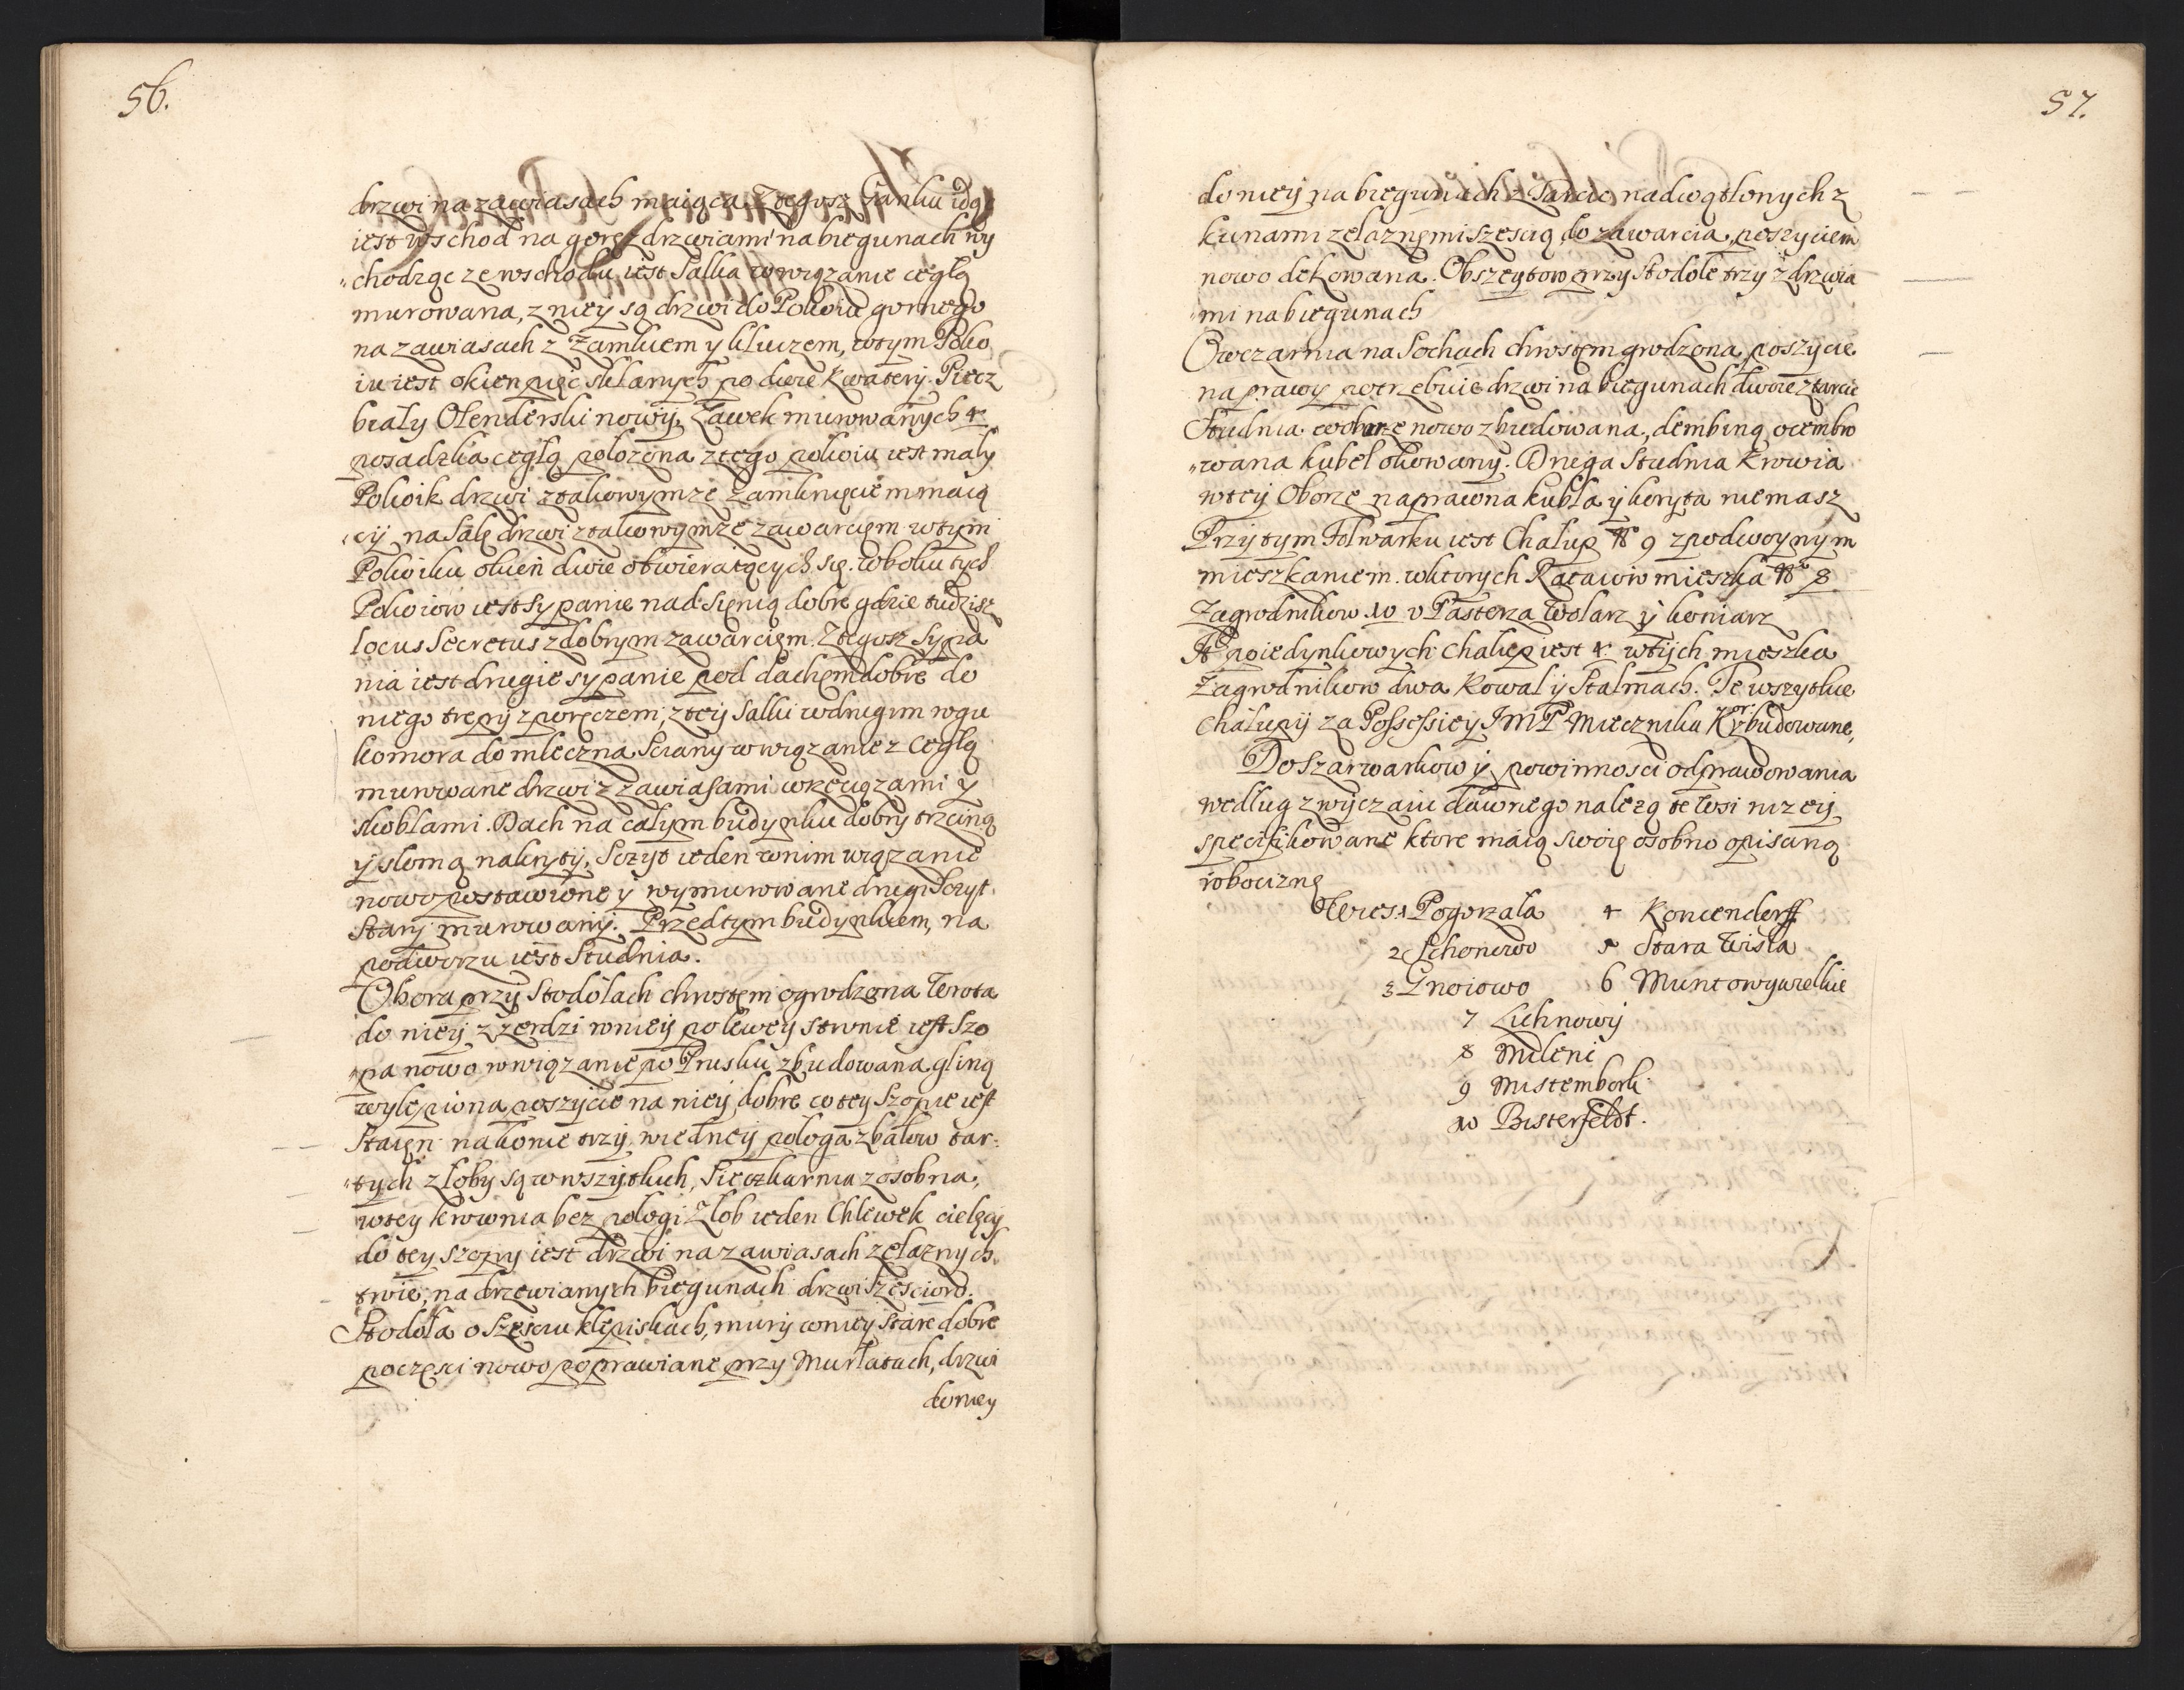 56.
drzwi na zawiasach maiąca. Ztegosz Ganku idąc
iest wschod na gorę z drzwiami na biegunach wy
„chodząc ze wschodu iest Salka w wiązanie cegłą
murowana, z niey są drzwi do Pokoiu gornego
na zawiasach z Zamkiem y kluczem, wtym Poko
iu iest okien pięc sklanych po dwie kwatery. Piecz
biały Olenderski nowy, Ławek murowanych 4.
posadzka cegłą położona z tego pokoiu iest mały
Pokoik drzwi z takowymze zamknięciem maią
„cy na Salę drzwi z takowymze zawarciem wtym
Pokoiku okien dwie otwieraiących się. w boku tych
Pokoiow iest sypanie nad Sięnią dobre gdzie tudzisz
locus Secretus z dobrym zawarciem. Ztegosz Sypa
nia iest drugie sypanie pod dachem dobre do
niego trepy z poręczem, z tey Salki w drugim rogu
komora do mleczna. Sciany w wiązanie z Cegłą
murowane drzwi z zawiasami wrzeciązami y
skoblami. Dach na całym budynku dobry trzciną
y słomą nakryty, Sczyt ieden w nim wiązanie
nowo postawione y wymurowane drugi Sczyt
Stary murowany. Przed tym budynkiem, na
podworzu iest Studnia.
Obora przy Stodołach chrostem ogrodzona Wrota
do niey z zerdzi w niey po lewey stronie iest Szo
„pa nowo w wiązanie po Prusku zbudowana gliną
wylepiona poszycie na niey dobre w tey Szopie iest
Staien na konie trzy, wiedney pologa z balow tar:
„tych złoby są w wszytkich, Sieczkarnia z osobna,
w tey krownia bez pologi Złob ieden Chlewek cielęcy
do tey szopy iest drzwi na zawiasach zelaznych
troie, na drzewianych biegunach drzwi sześcioro.
Stodoła o Szesciu klepiskach, mury w niey stare dobre
poczęsci nowo poprawiane przy Murłatach, drzwi
do niey
57.
do niey na biegunach z Tarcic nadwątlonych z
kunami zelaznęmi szescią do zawarcia, poszyciem
nowo dekowana. Obszeytow przy Stodole trzy z drzwia
„mi na biegunach
Owczarnia na Sochach chrostem grodzona, poszycie
naprawy potrzebuie drzwi na biegunach dwoie z tarcic
Studnia w oborze nowo zbudowana, dembiną ocembro
„wana kubeł okowany. Druga Studnia krowia
w tey Oborze naprawna kubła y koryta niemasz
Przy tym Folwarku iest Chalup No 9 z podwoynym
mieszkaniem. w ktorych Ratajow mieszka No 8
Zagrodnikow 10 v Pasterza Wolarz y koniarz
A poiedynkowych chalup iest 4. w tych mieszka
Zagrodnikow dwa Kowal y Stalmach. Te wszytkie
Chalupy za Possessiey JMP Miecznika Kor. zbudowane,
Do Szarwarkow y powinnosci odprawowania
według zwyczaiu dawnego nalezą te Wsi nizey
specifikowane ktore maią swoię osobno opisaną
robociznę
Wies 1 Pogorzała 4 Koncenderff
2 Schonowo 5 Stara Wisła
3 Gnoiowo 6 Muntowy wielkie
7 Lichnowy
8 Mileni
9 Mistembork
10 Bisterfeldt.